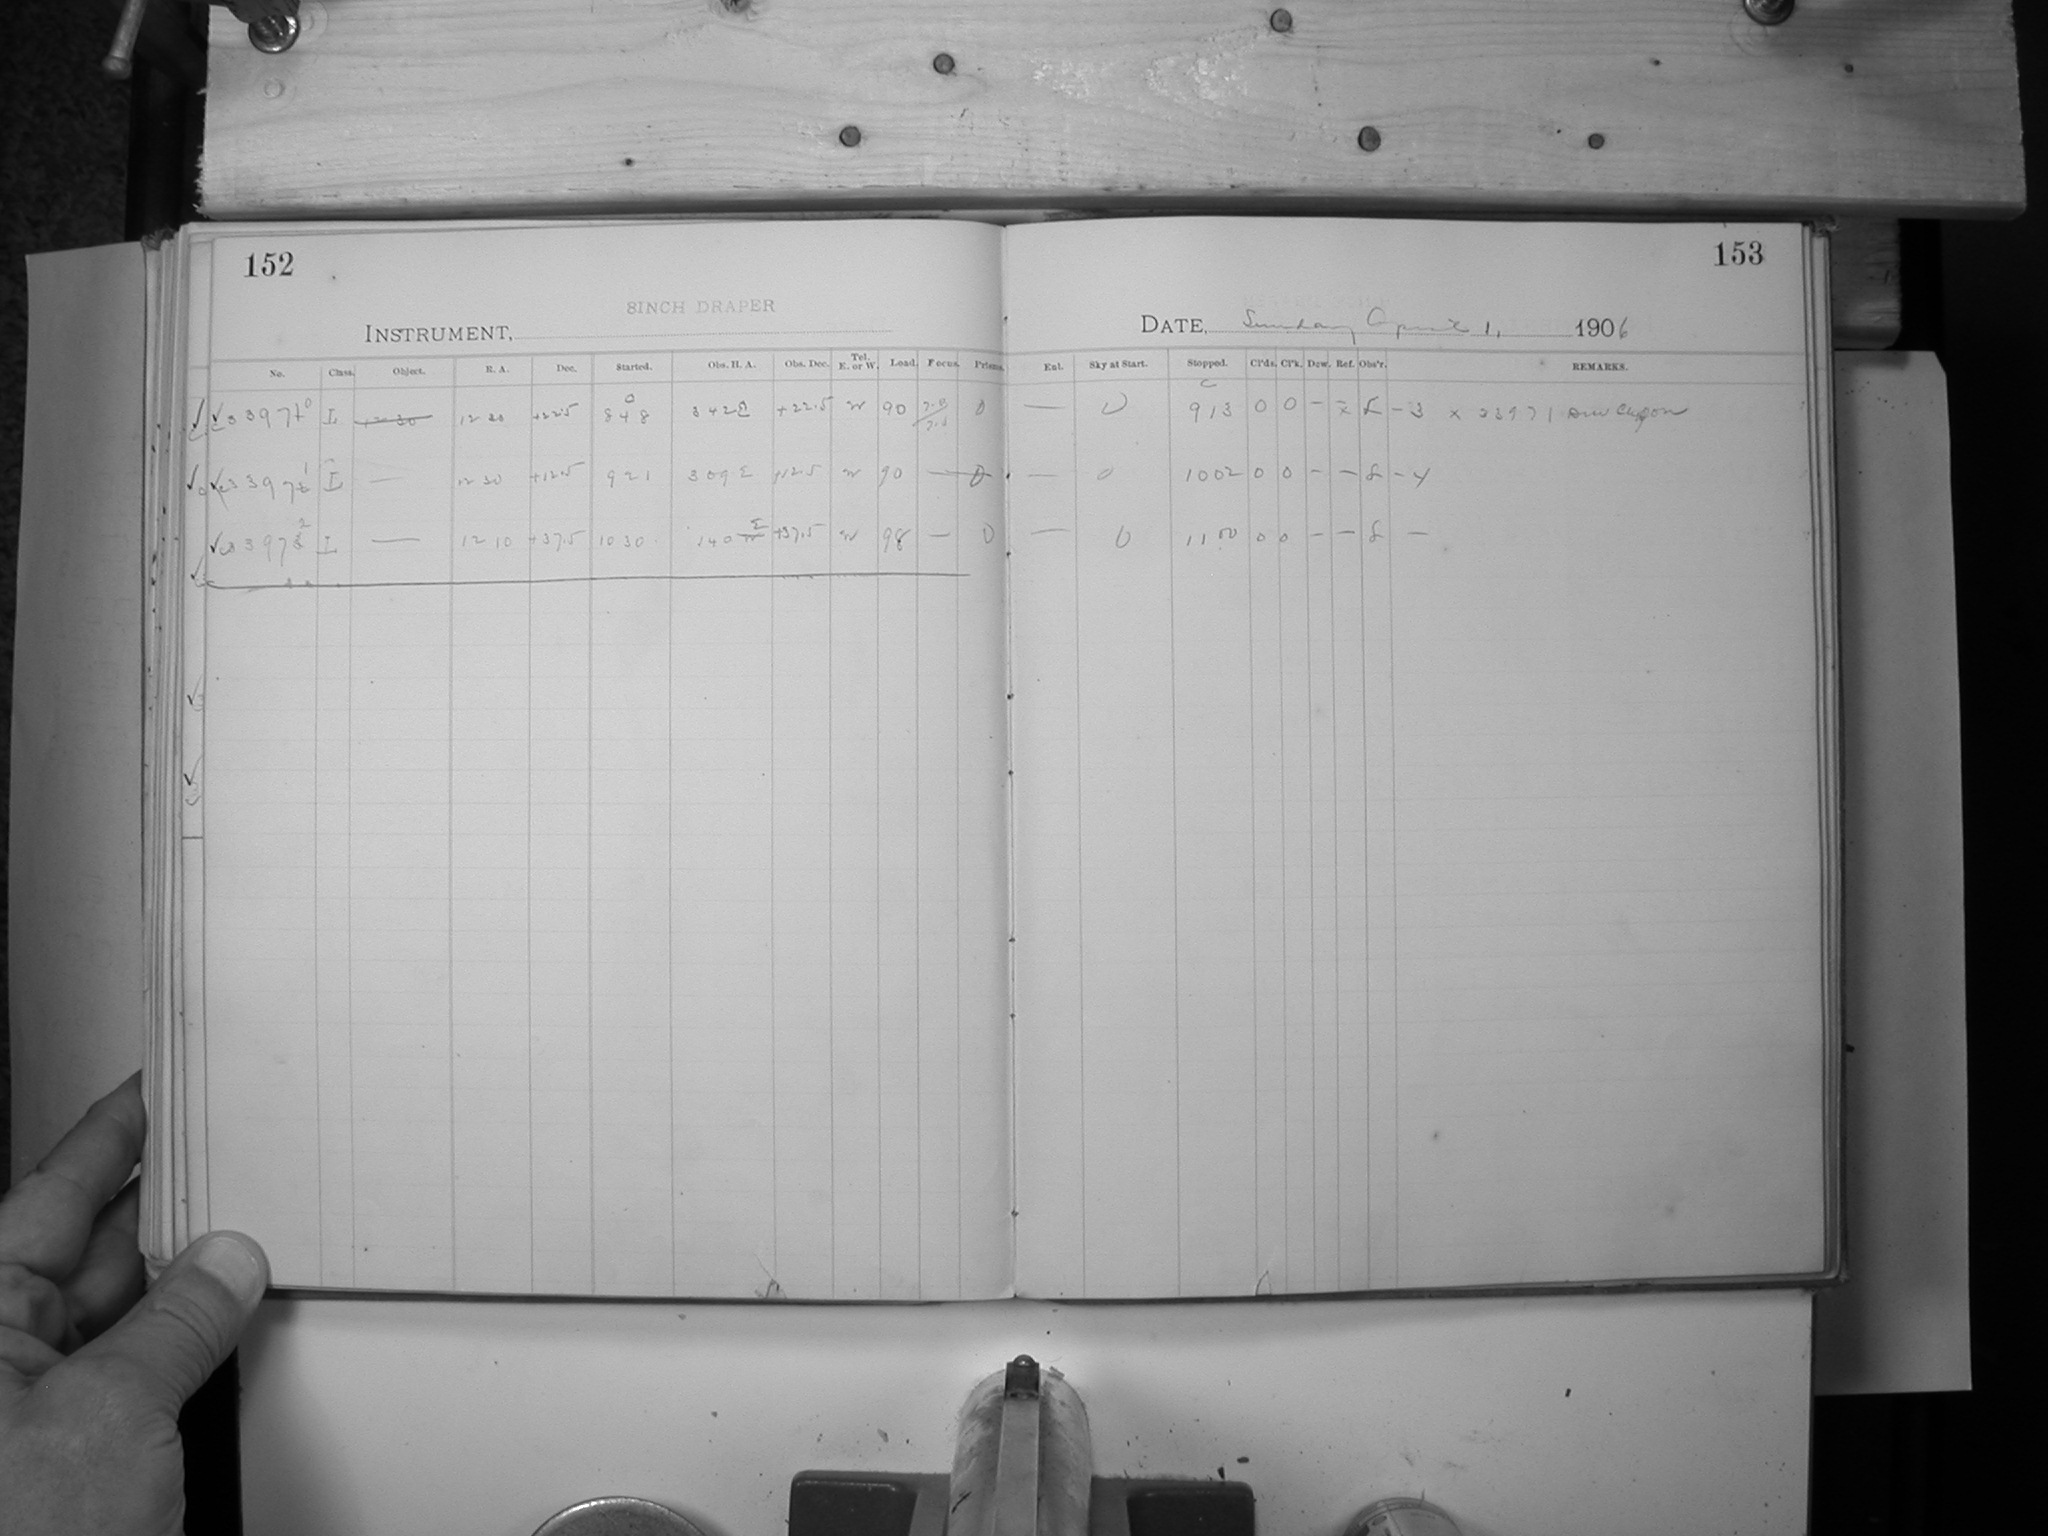 152
153
8INCH DRAPER
INSTRUMENT,
DATE, Sunday April 1, 1906
No. Class. Object. R. A. Dec. Started. Obs. H. A. Obs. Dec. Tel. E. or W. Load. Focus. Prisms. Ent. Sky at Start. Stopped. Cl'ds. Cl'k. Dew. Ref. Obs'r. REMARKS.
12 30 +22.5 8 48 3 42 E +22.5 W 90 0 — 0 9 13 0 0 - - x 33971
L — 12 30 +12.5 9 21 3 09 E +12.5 W 90 — 0 — 0 10 02 0 0 - - - 4
L — 12 10 +37.5 10 30 1 40 E +37.5 W 98 — 0 — 0 11 00 0 0 - - -